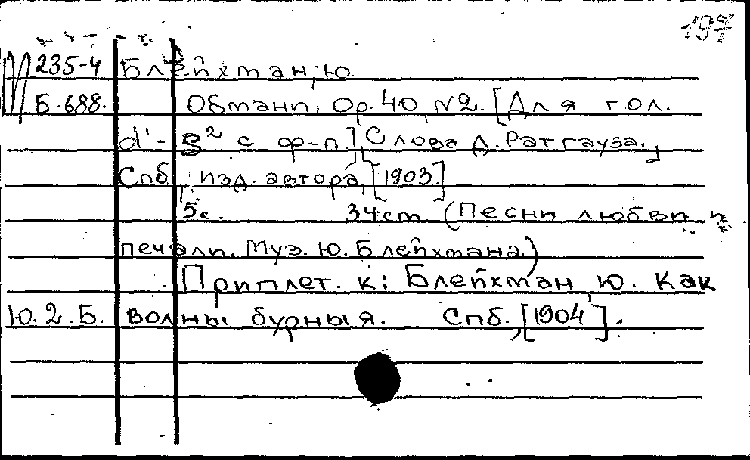 197
М 235-4 Блейхман, Ю.
Б.688. Обмани, Ор.40, N2. [Для гол.
d'-g² с ф-п], Слова Д. Ратгауза.,
Спб., изд. автора, [1903]
5с. 34cm (Песни любви и
печали. Муз. Ю. Блейхмана.)
Приплет. к: Блейхман, Ю. Как
Ю.2.Б. волны бурныя. Спб., [1904].